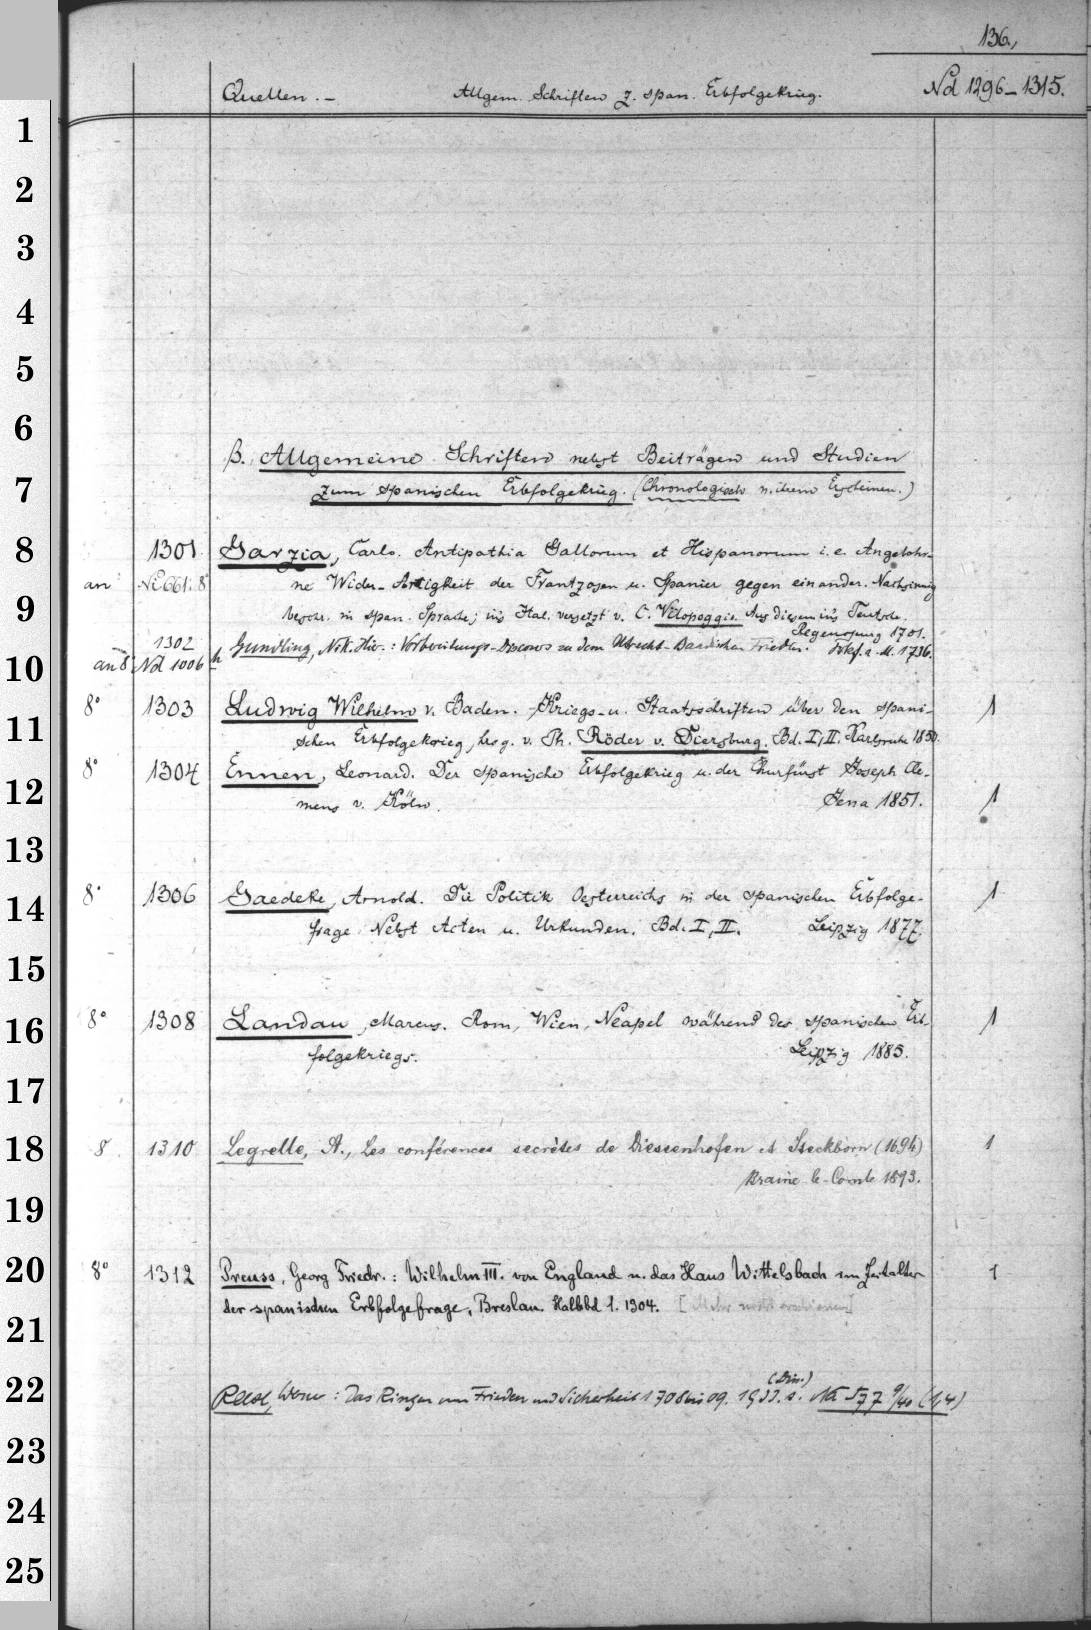 136.,
Quellen. – Allgem. Schriften z. span. Erbfolgekrieg. Nd 1296–1315.
1
2
3
4
5
6
β. Allgemeine Schriften nebst Beiträgen und Studien
7 zum spanischen Erbfolgekrieg. (Chronologisch n. ihrem Erscheinen.)
8 1301 Garzia, Carlo. Antipathia Gallorum et Hispanorum i. e. Angebohr-
an Nc 661. 8° ne Wider-Artigkeit der Frantzosen u. Spanier gegen einander. Nachsinnig
9 beschr. in span. Sprache; ins Ital. versetzt v. C. Vilopoggio. Aus diesem ins Teutsche.
Regenspurg 1701.
1302 Gundling, Nik. Hier.: Vorbereitungs-Discours zu dem Utrecht-Badischen Frieden. Frkf. a. M. 1736.
10 an 8° Nd 1006 h
8° 1303 Ludwig Wilhelm v. Baden. Kriegs- u. Staatsschriften über den spani- 1
11 schen Erbfolgekrieg, hrsg. v. Ph. Röder v. Diersburg. Bd. I, II. Karlsruhe 1850.
8° 1304 Ennen, Leonard. Der spanische Erbfolgekrieg u. der Churfürst Joseph Cle-
12 mens v. Köln. Jena 1851. 1
13
14 8° 1306 Gaedeke, Arnold. Die Politik Oesterreichs in der spanischen Erbfolge- 1
frage. Nebst Acten u. Urkunden. Bd. I, II. Leipzig 1877.
15
16 8° 1308 Landau, Marcus. Rom, Wien, Neapel während des spanischen Erb- 1
folgekriegs. Leipzig 1885.
17
18 8° 1310 Legrelle, A., Les conférences secrètes de Diessenhofen et Steckborn (1694) 1
Braine-le-Comte 1893.
19
20 8° 1312 Preuss, Georg Friedr.: Wilhelm III. von England u. das Haus Wittelsbach im Zeitalter 1
der spanischen Erbfolgefrage, Breslau. Halbbd 1. 1904. [Mehr nicht erschienen]
21
(Diss.)
22 Reese, Werner: Das Ringen um Frieden und Sicherheit 1708 bis 09. 1933. s. Na 577 9/40 (1,4)
23
24
25